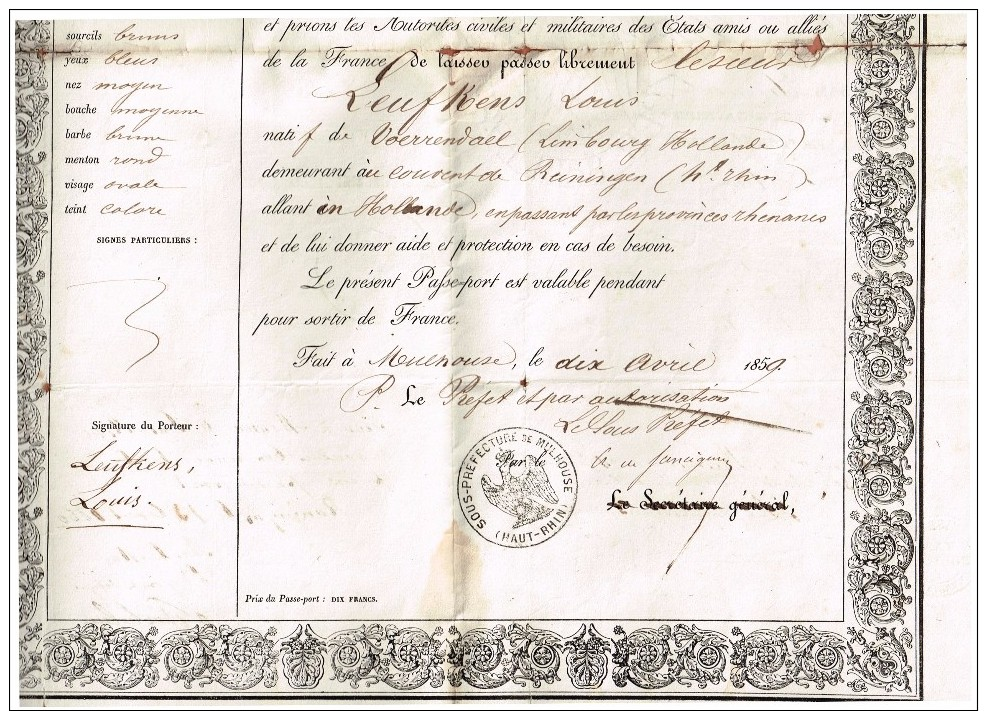 sourcils bruns
yeux bleus
nez moyen
bouche moyenne
barbe brune
menton rond
visage ovale
teint coloré
SIGNES PARTICULIERS :
Signature du Porteur :
Leufkens,
Louis.
et prions les Autorités civiles et militaires des États amis ou alliés
de la France de laisser passer librement le sieur
Leufkens Louis
natif de Voerrendael (Limbourg Hollande)
demeurant au couvent de Reiningen (ht. rhin)
allant en Hollande, en passant par les provinces rhénanes
et de lui donner aide et protection en cas de besoin.
Le présent Passe-port est valable pendant
pour sortir de France.
Fait à Mulhouse, le dix avril 1859.
P. Le Préfet et par autorisation
Le Sous Préfet
Par le
Le Secrétaire général,
SOUS-PRÉFECTURE DE MULHOUSE
(HAUT-RHIN)
Prix du Passe-port : DIX FRANCS.